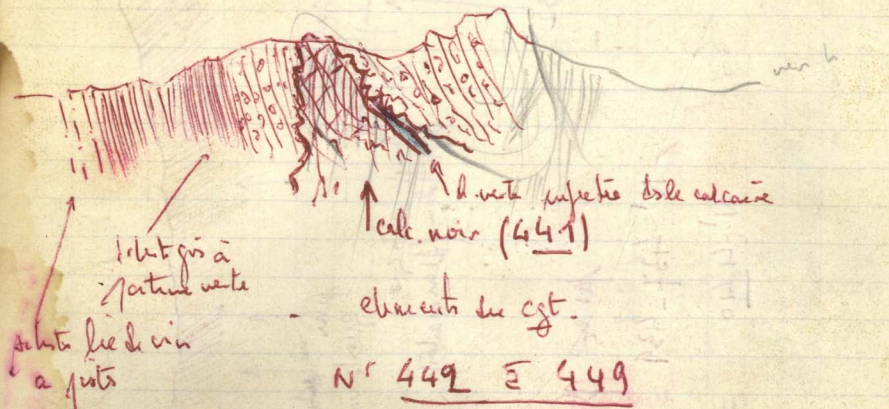 R. verte injectée ds le calcaire
calc. noir (441)
schistes gris à
patine verte
elements du cgt.
schistes lie de vin
a grès
Nr 442 à 449